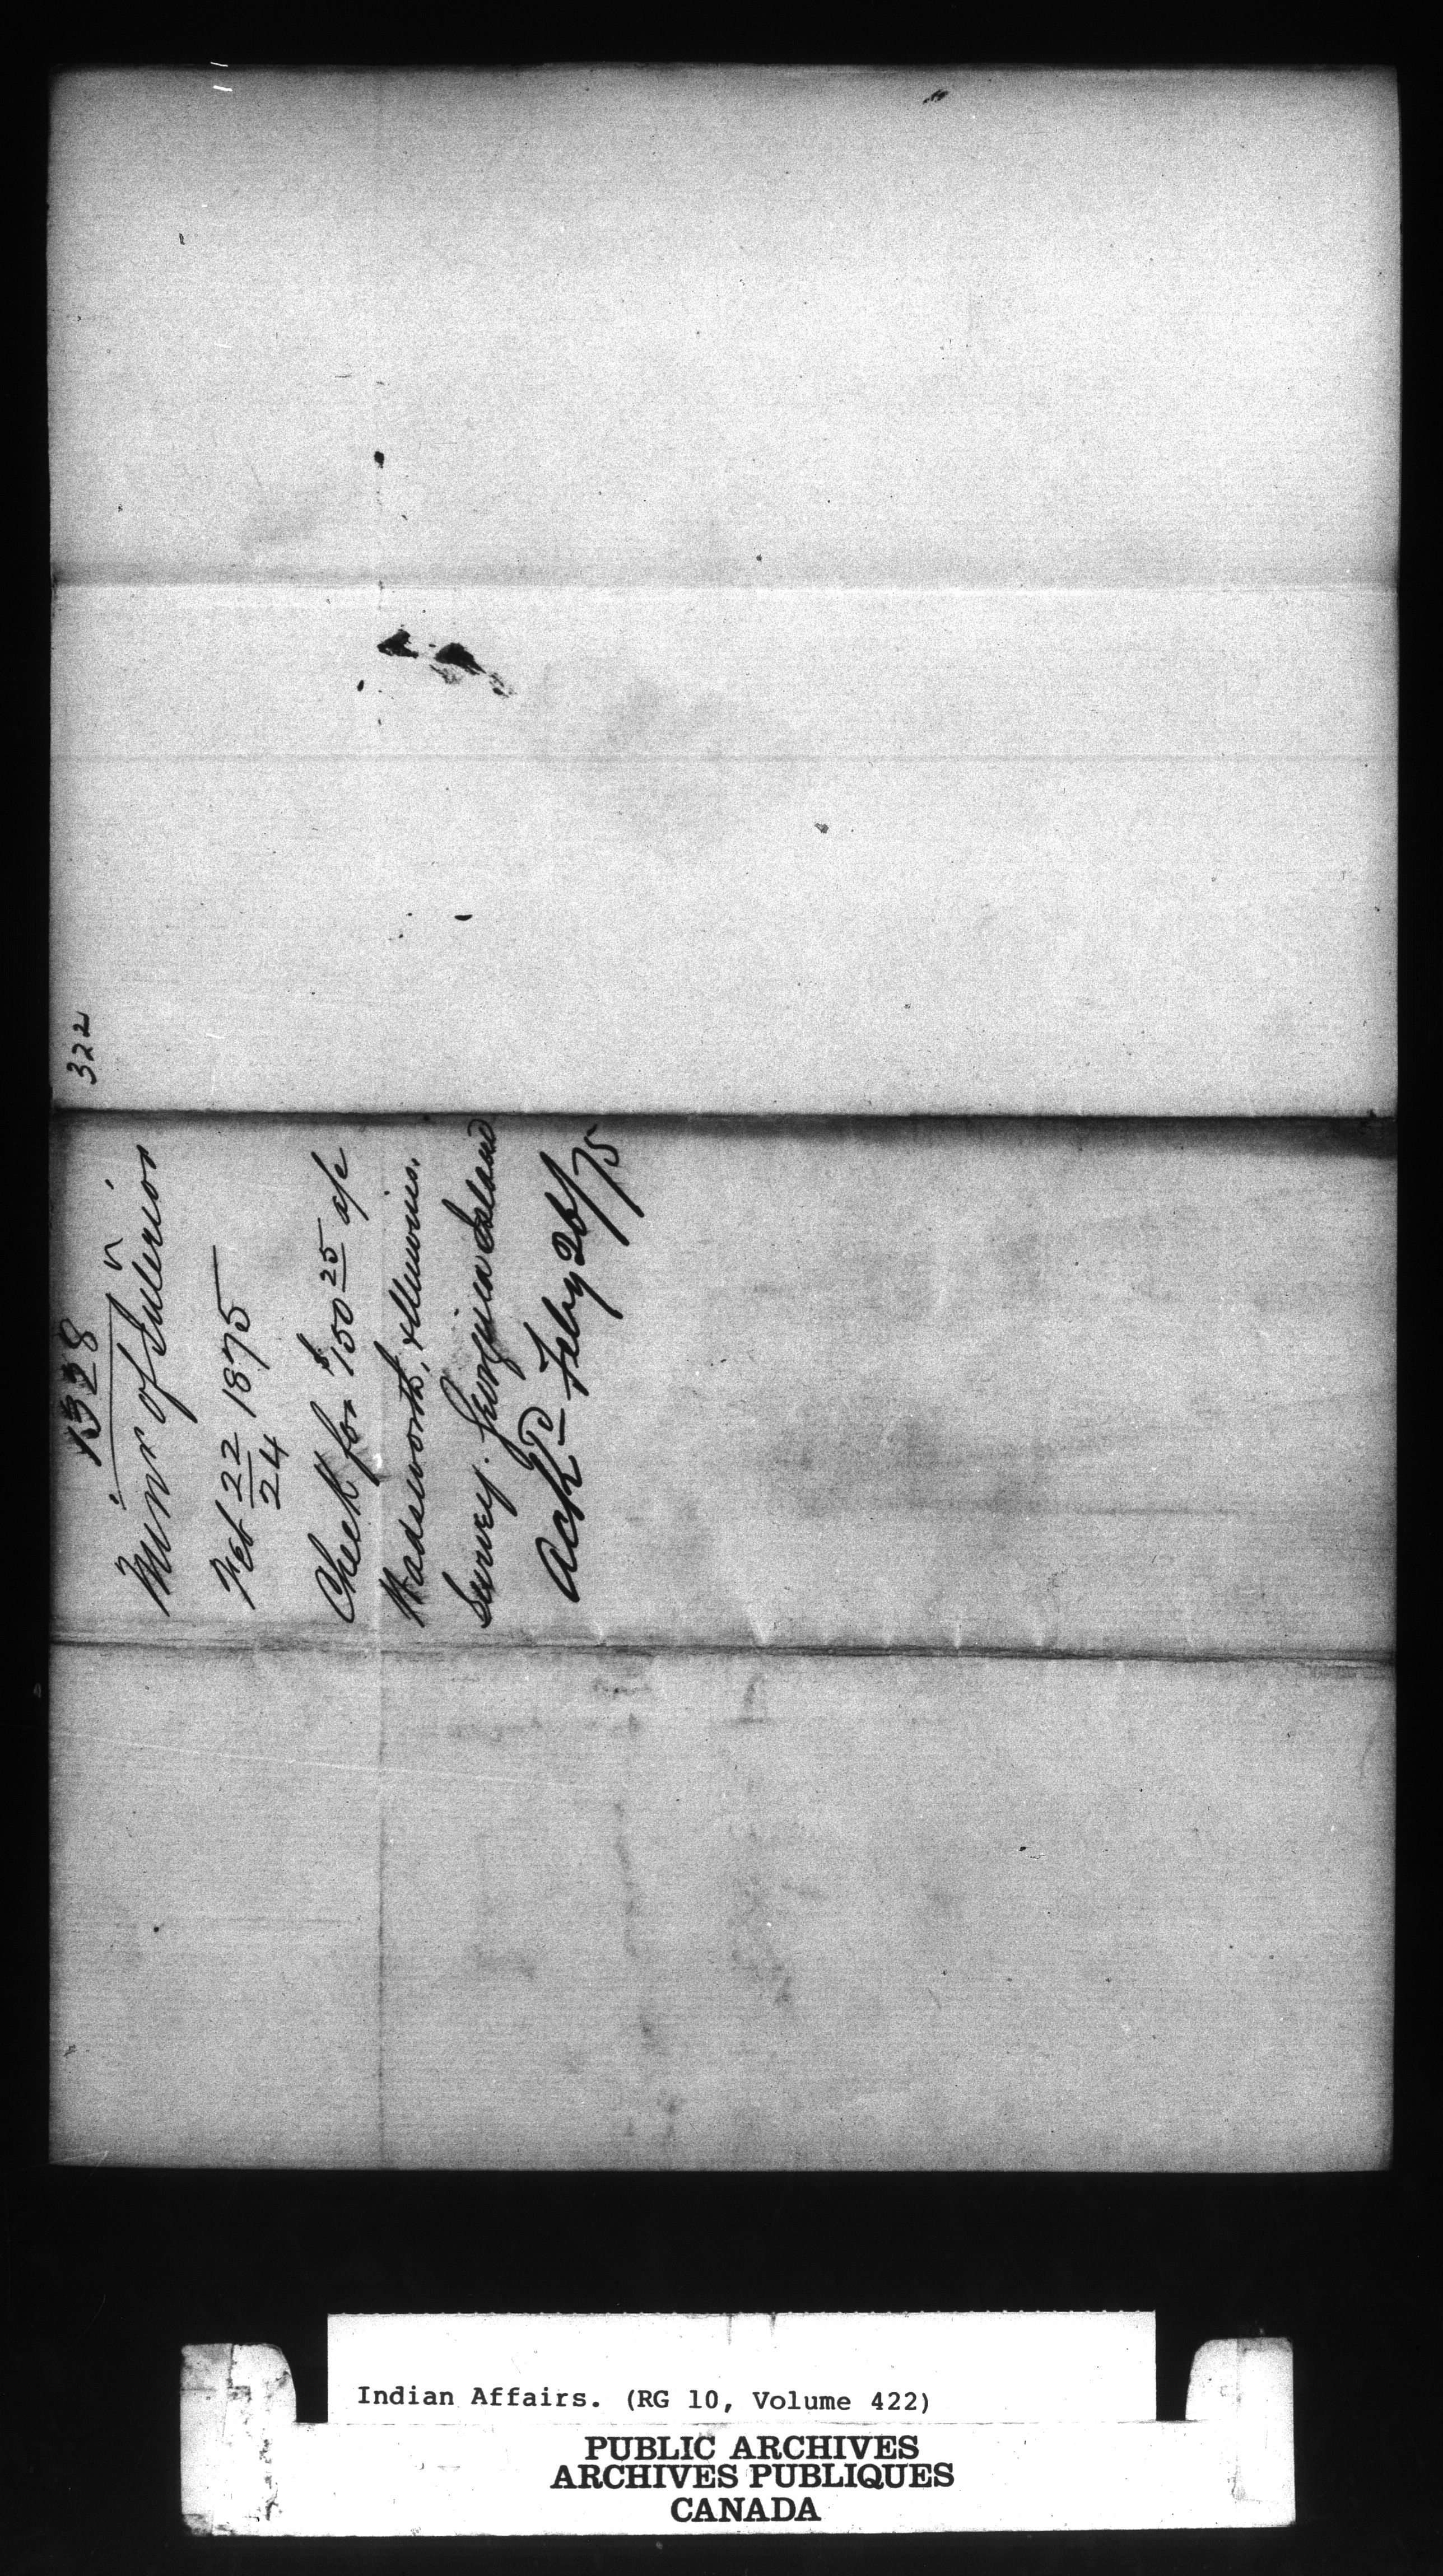 322
1328
Minr of Interior
Feb 22/24 1875
Check for $150 25 a/c
Wadsworth, & Unwins.
Survey. Georgina Island
Ackd Feby 26/75
Indian Affairs. (RG 10, Volume 422)
PUBLIC ARCHIVES
ARCHIVES PUBLIQUES
CANADA